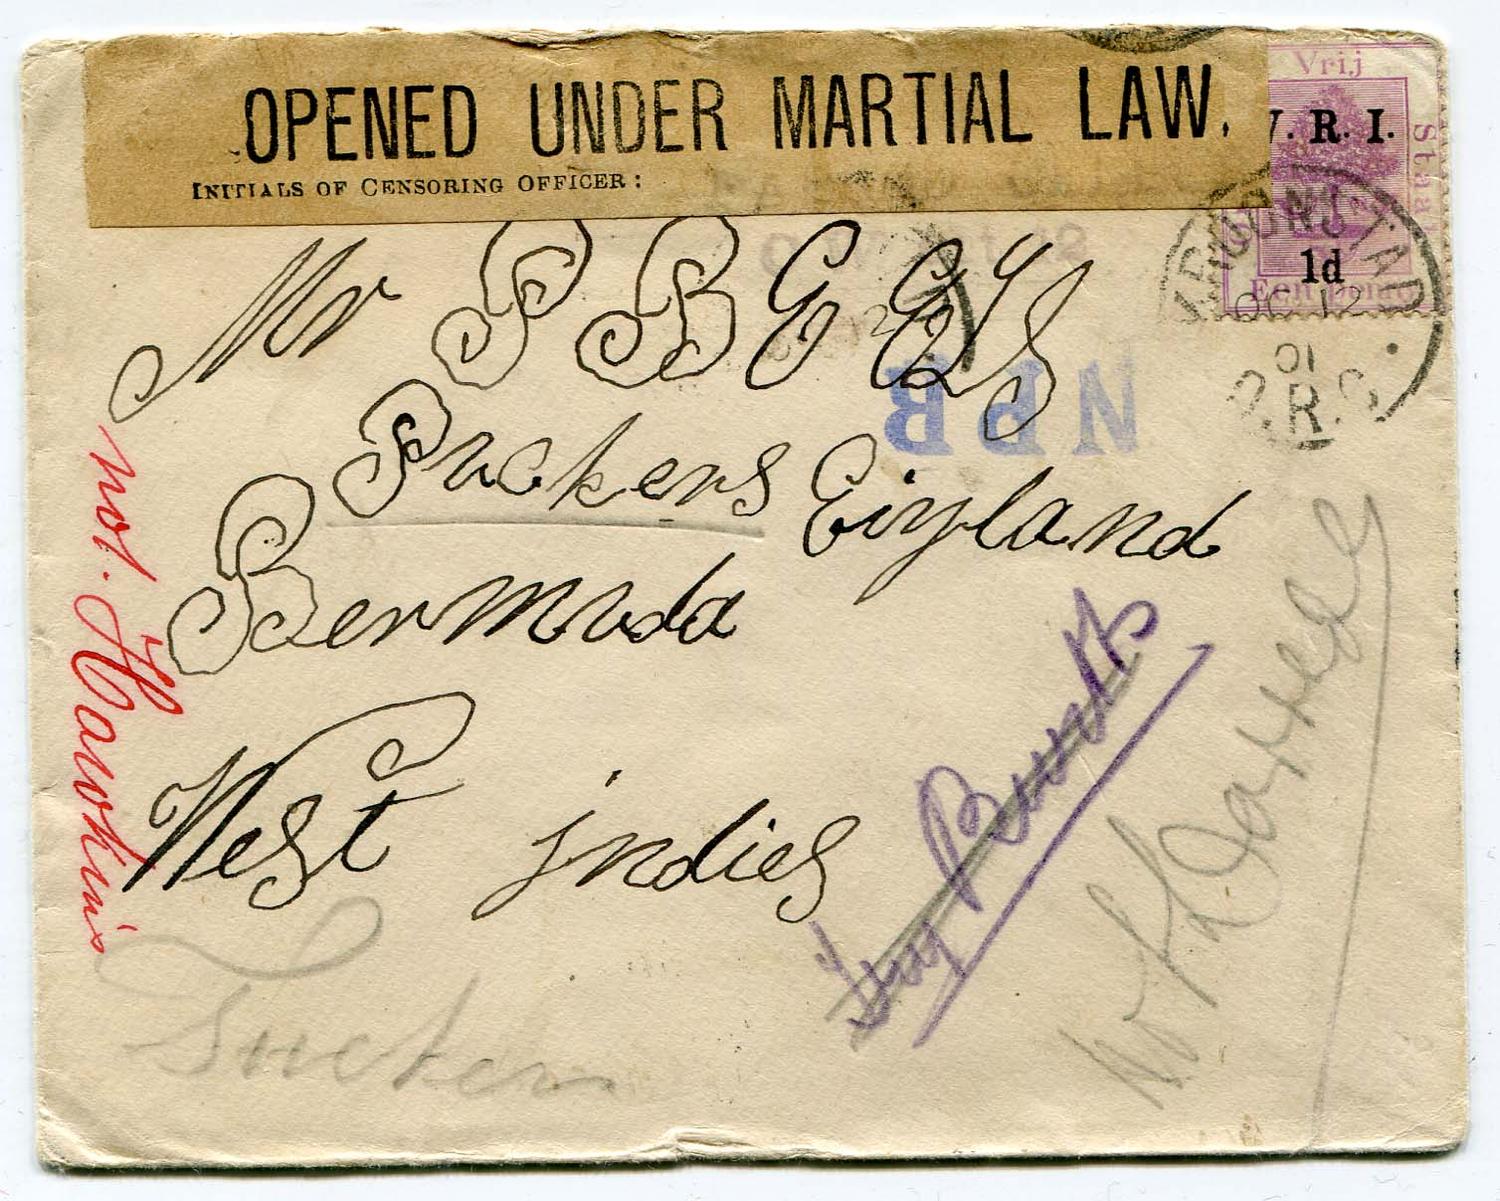 OPENED UNDER MARTIAL LAW.
INITIALS OF CENSORING OFFICER:
Vrij
Staat
V. R. I.
1d
Een Penny
KROONSTAD
OC 12
01
O.R.C.
Mr P B E Els
NPB
Puckers Eiyland
Bermuda
West indies
not Hawkin's
Tucker
Try Burtts
Not Darrell